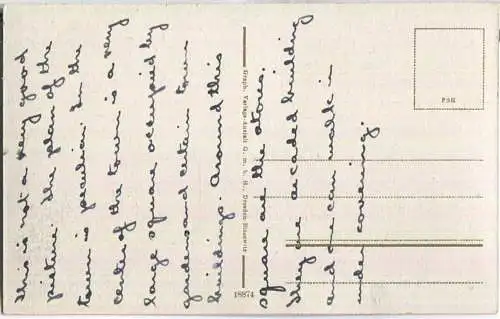 This is not a very good
picture. The plan of the
town is peculiar. In the
center of the town is a very
large square occupied by
gardens and certain town
buildings. Around this
square are the stores.
They are arcaded building
and one can walk in
under covering.
Graph. Verlags-Anstalt G. m. b. H., Dresden-Blasewitz
18874
PSH